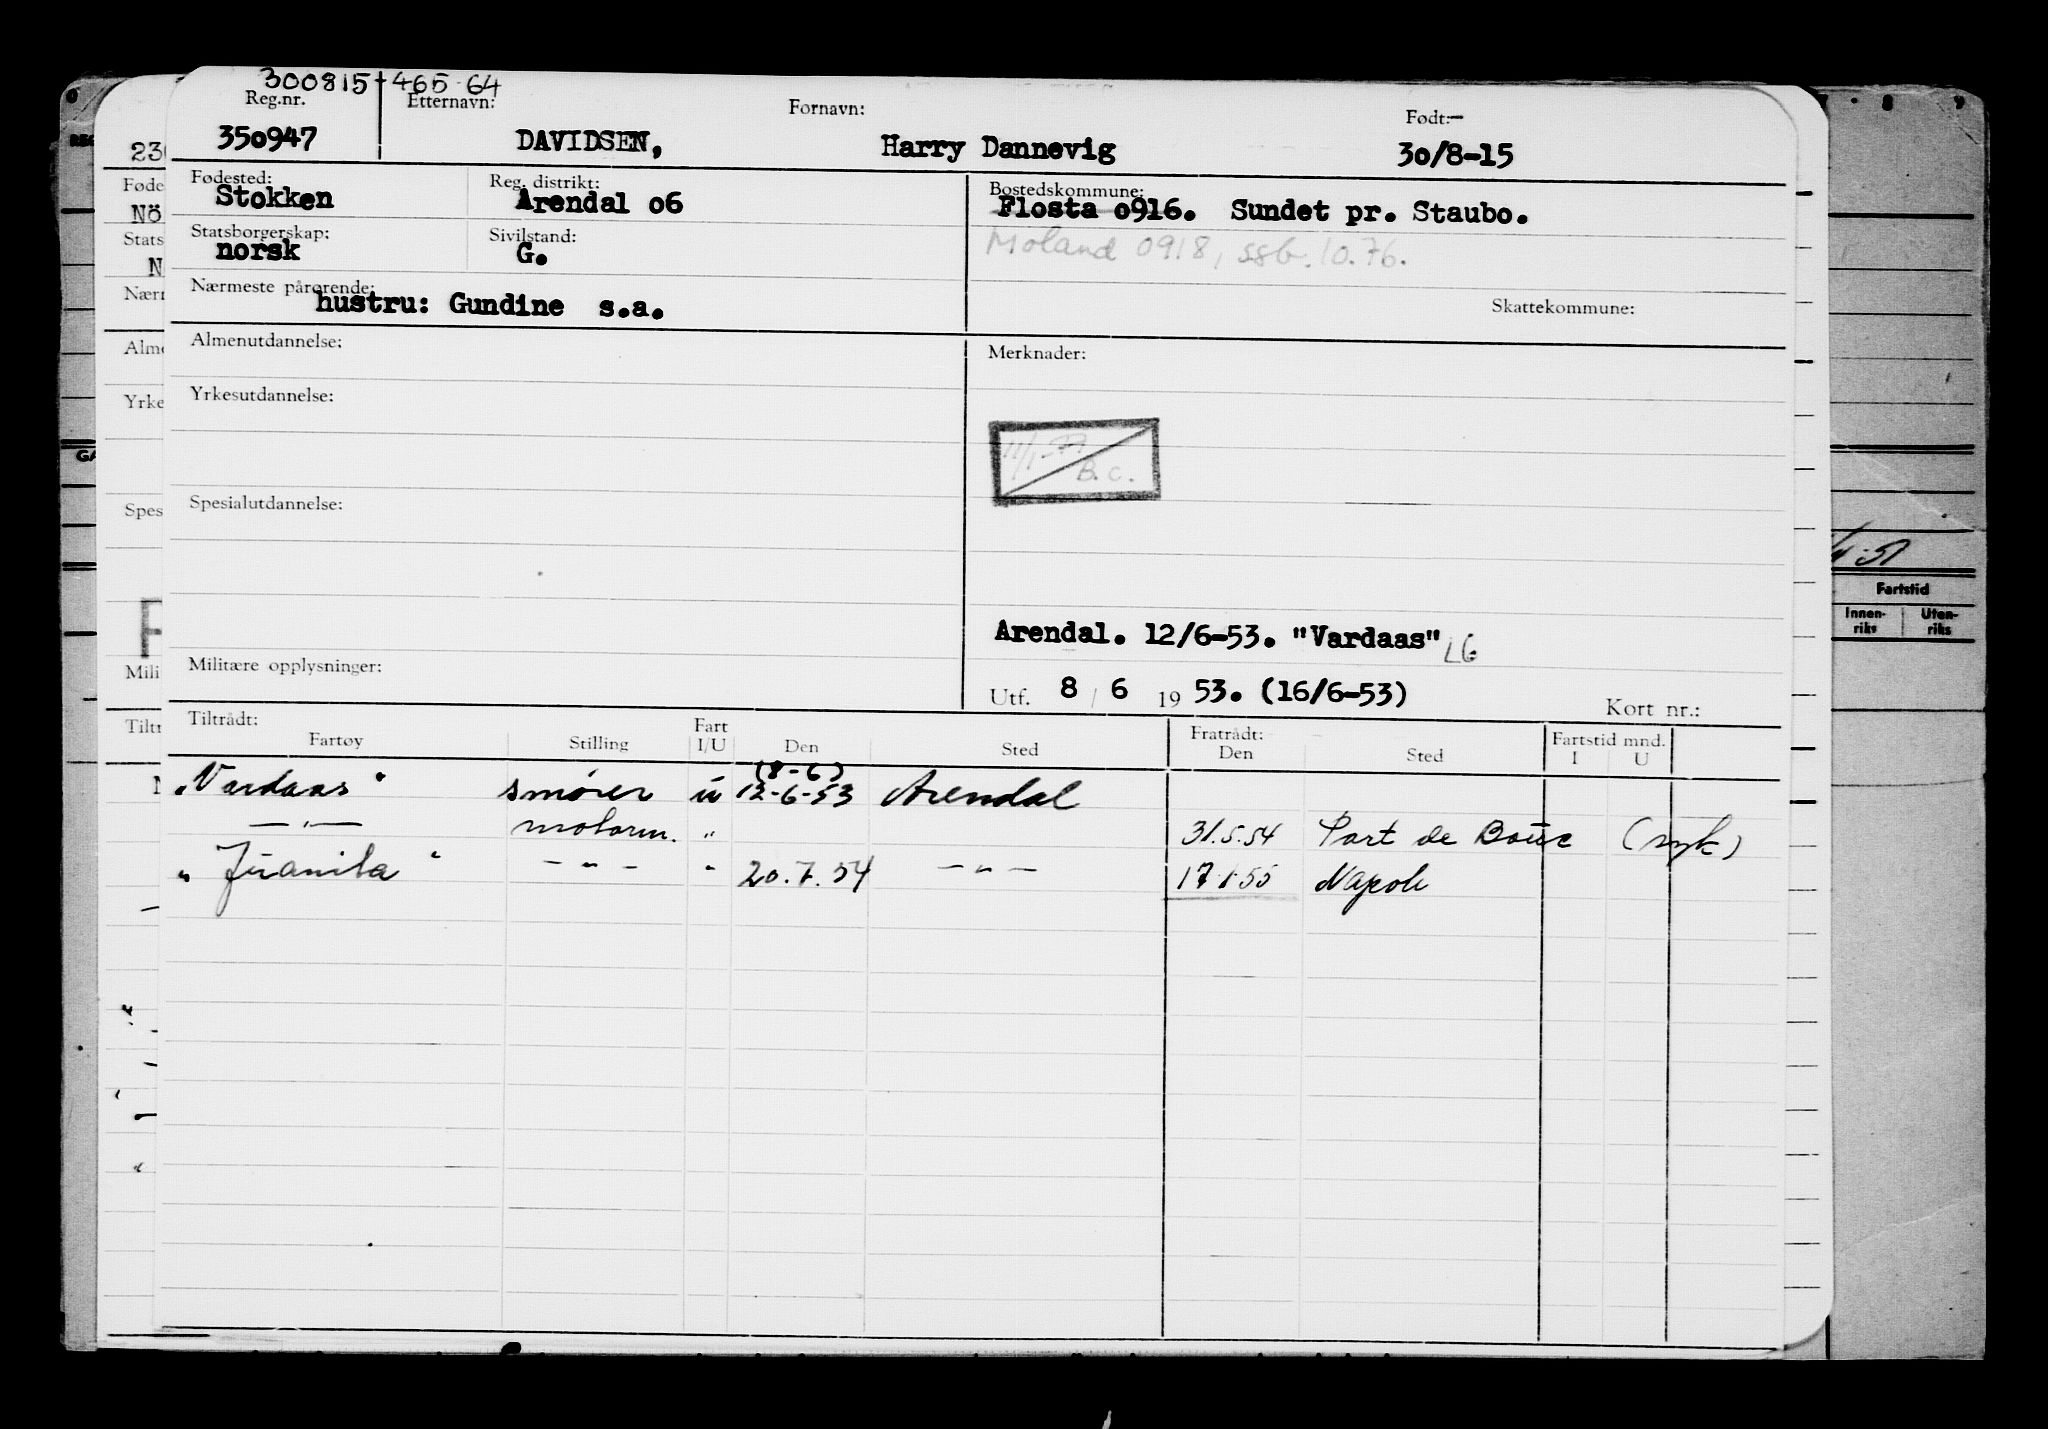 300815 465 64
Reg.nr. Etternavn: Fornavn: Født:
350947 DAVIDSEN, Harry Dannevig 30/8-15
Fødested: Reg. distrikt: Bostedskommune:
Stokken Arendal o6 Flosta o916. Sundet pr. Staubo.
Statsborgerskap: Sivilstand: Moland 0918, ssb. 10.76.
norsk G.
Nærmeste pårørende: Skattekommune:
hustru: Gundine s.a.
Almenutdannelse: Merknader:
Yrkesutdannelse:
B.C.
Spesialutdannelse:
Arendal. 12/6-53. "Vardaas" LG
Militære opplysninger:
Utf. 8 / 6 19 53. (16/6-53) Kort nr.:
Tiltrådt: Fratrådt: Fartstid mnd.
Fartøy Stilling Fart I/U Den Sted Den Sted I U
(8-6)
"Vardaas" smører u 12-6-53 Arendal
— " — motorm. " 31.5.54 Port de Bouc (syk)
"Juanita" — " — " 20.7.54 — " — 17.1.55 Napoli
230
Føde
Nö
Stats
N
Nærr
Alme
Yrke
Spes
Mili
Tiltr
GA
Fartstid
Innen-riks Uten-riks